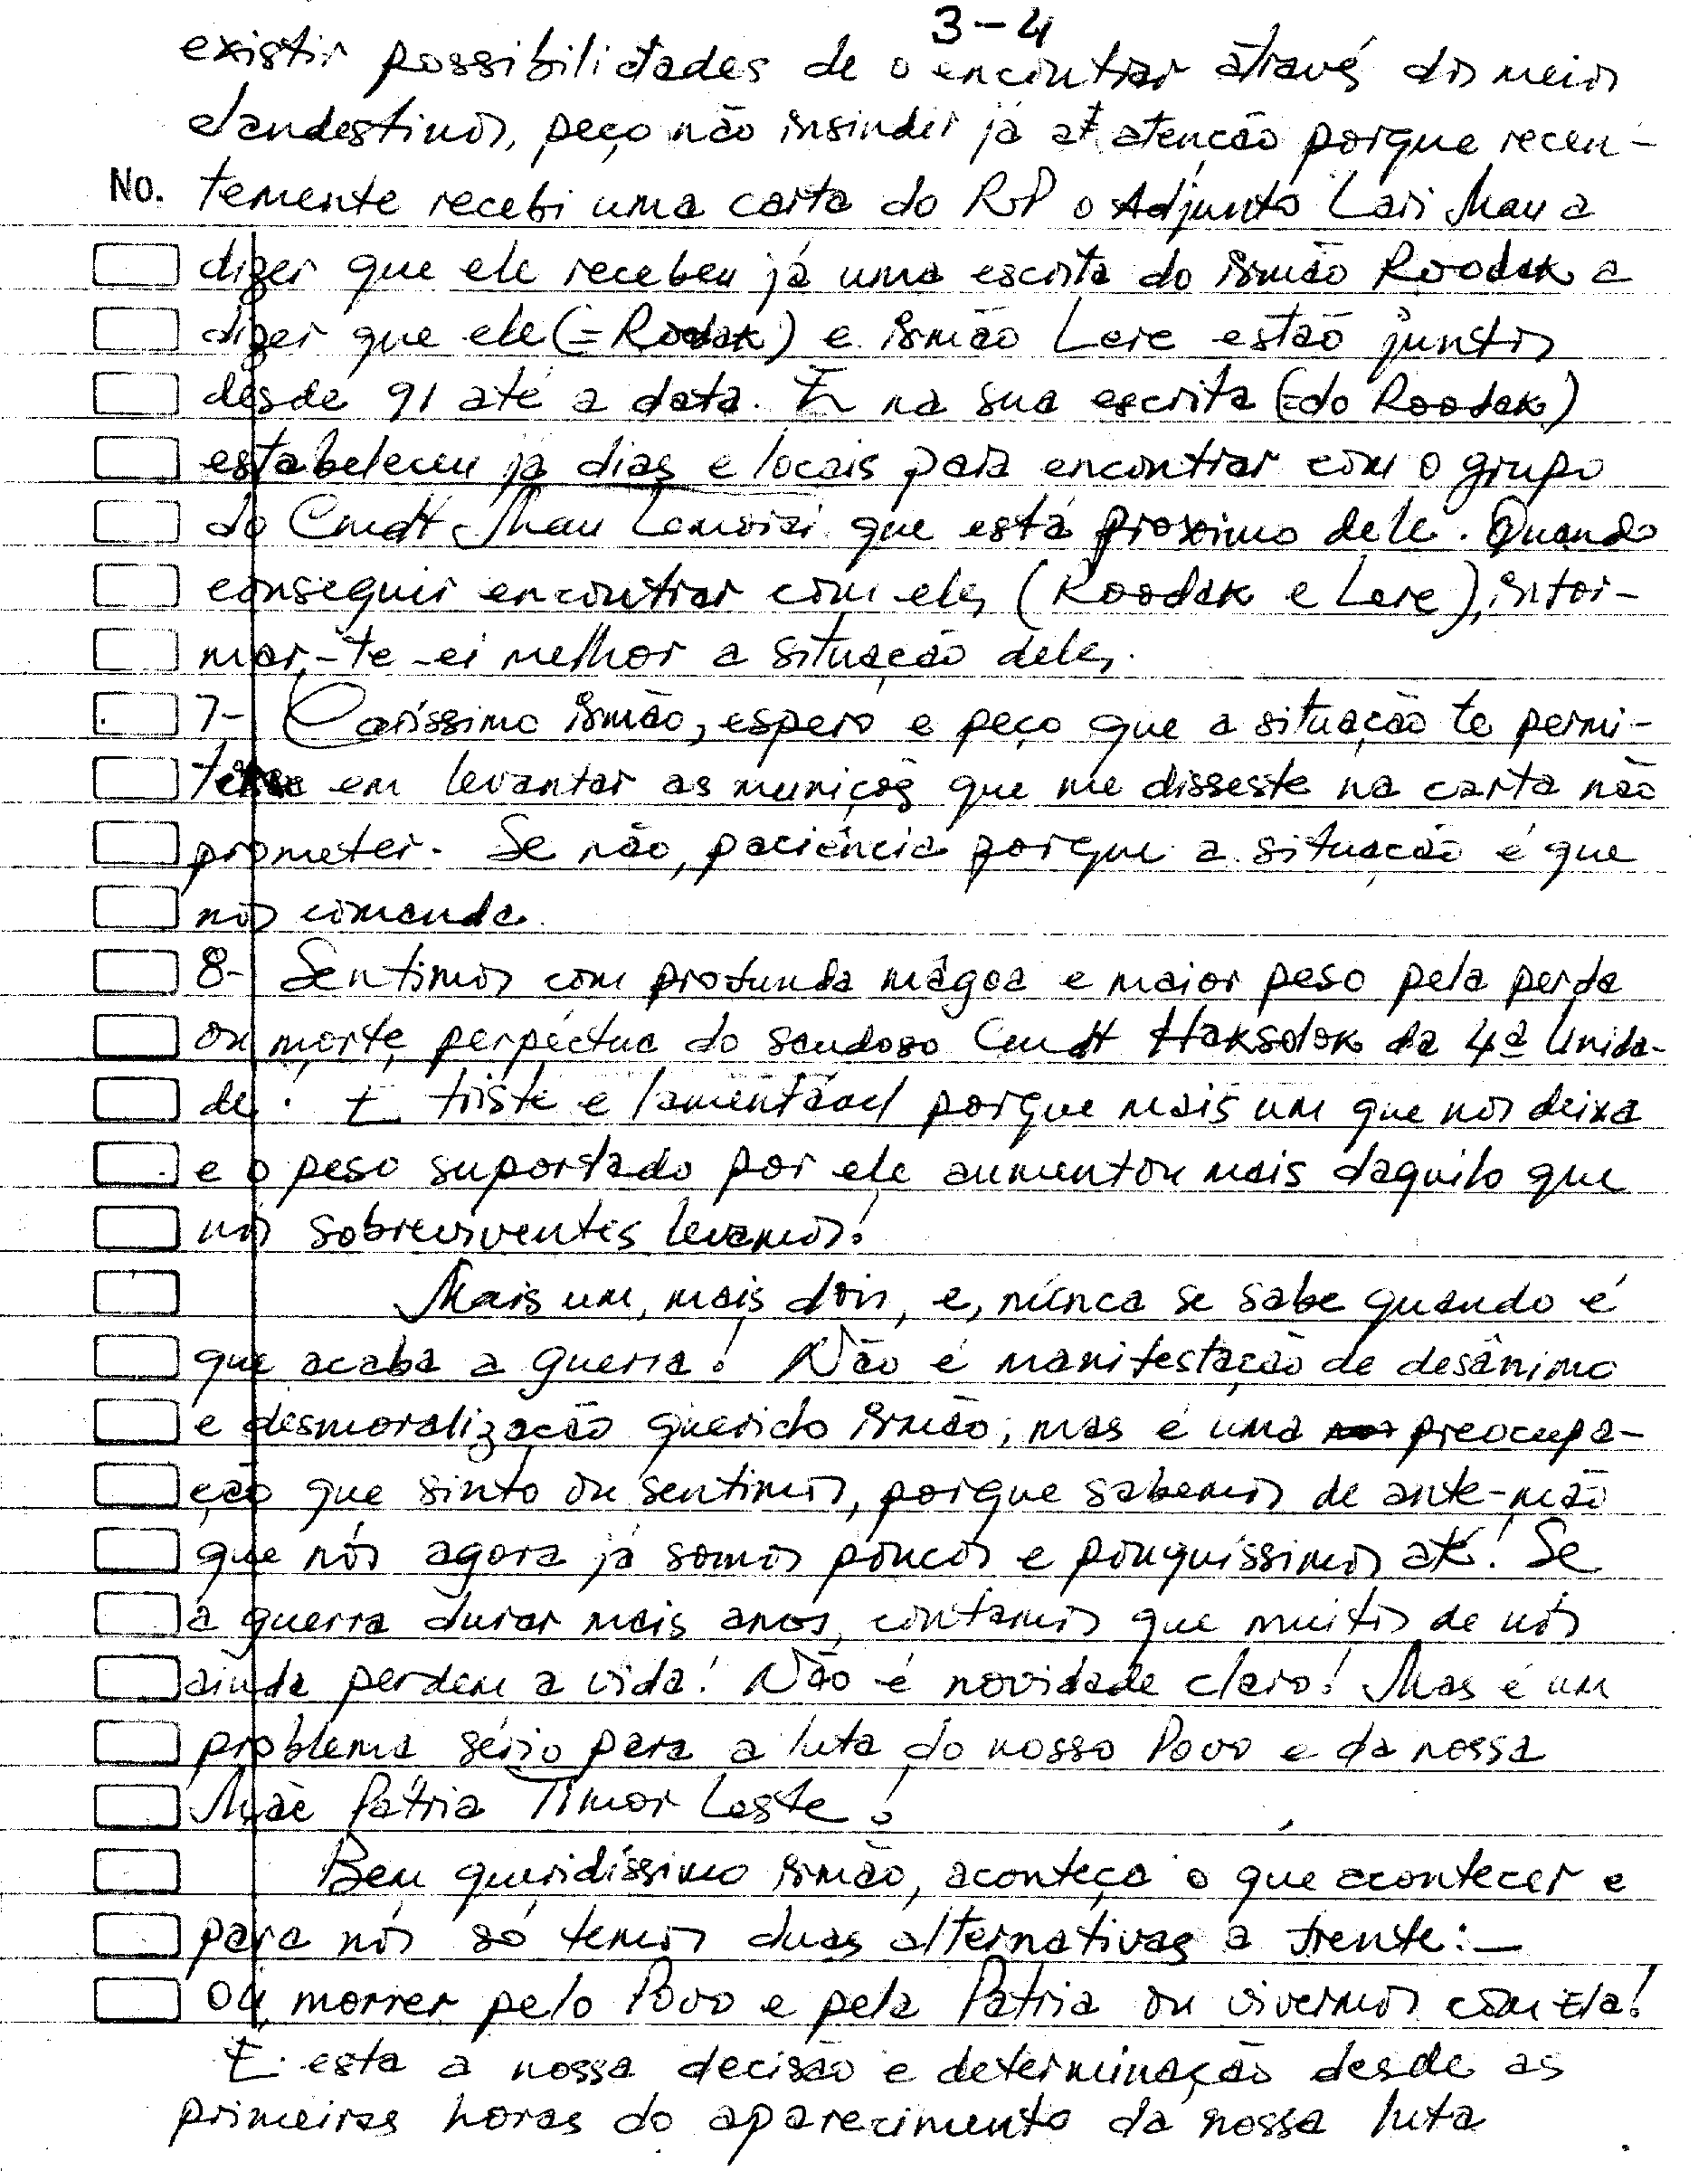 3-4
existir possibilidades de o encontrar através dos meios
clandestinos, peço não insindir já a atenção porque recen-
No. temente recebi uma carta do RP o Adjunto Lari Mau a
dizer que ele recebeu já uma escrita do irmão Roodak a
dizer que ele (= Rodak) e irmão Lere estaõ juntos
desde 91 até a data. E na sua escrita (=do Roodak)
estabeleceu já dias e locais para encontrar com o grupo
do Cmdt Mau que está proximo dele. Quando
conseguir encontrar com eles (Roodak e Lere), infor-
mar-te-ei melhor a situação deles.
7- Caríssimo irmão, espero e peço que a situação te permi-
em levantar as munições que me disseste na carta não
prometer. Se não, paciência porque a situação é que
nos comanda.
8- Sentimos com profunda mágoa e maior peso pela perda
ou morte perpéctua do saudoso Cmdt Haksolok da 4ª Unida-
de. É triste e lamentável porque mais um que nos deixa
e o peso suportado por ele aumentou mais daquilo que
nós sobreviventes levamos!
Mais um, mais dois, e, núnca se sabe quando é
que acaba a guerra! Não é manifestação de desânimo
e desmoralização querido irmão, mas é uma preocupa-
ção que sinto ou sentimos, porque sabemos de ante-mão
que nós agora já somos poucos e pouquíssimos até! Se
a guerra durar mais anos, contamos que muitos de nós
ainda perdem a vida! Não é novidade claro! Mas é um
problema sério para a luta do nosso Povo e da nossa
Mãe Pátria Timor Leste!
Bem queridíssimo irmão, aconteça o que acontecer e
para nós só temos duas alternativas à frente:-
Ou morrer pelo Povo e pela Pátria ou vivermos com Ela!
É esta a nossa decisão e determinação desde as
primeiras horas do aparecimento da nossa luta